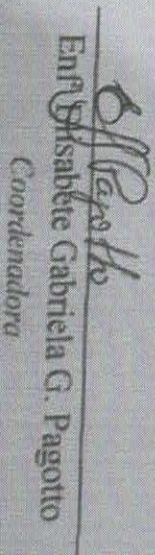 Enfª Elisabete Gabriela G. Pagotto
Coordenadora